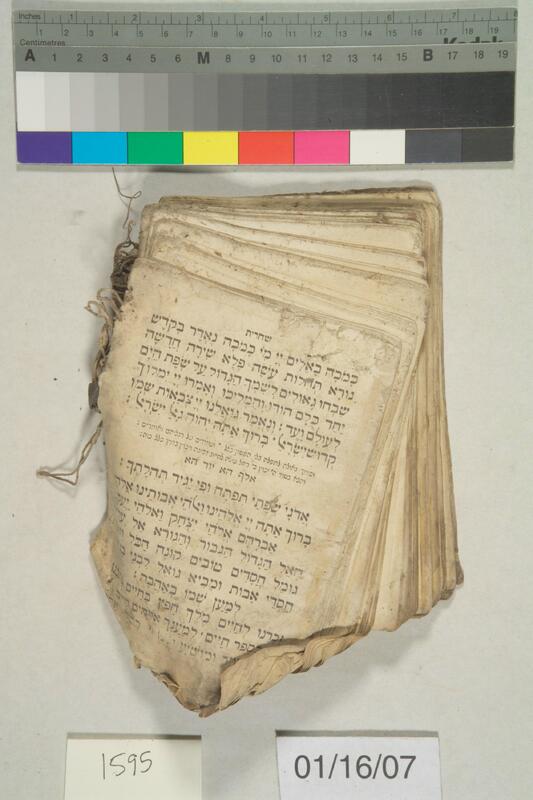 Inches 1 2 3 4 5 6 7 8
Centimetres 1 2 3 4 5 6 7 8 9 10 11 12 13 14 15 16 17 18 19
Kodak
A 1 2 3 4 5 6 M 8 9 10 11 12 13 14 15 B 17 18 19
שחרית
כָמֹכָה בָּאֵלִים יְיָ מִי כָּמֹכָה נֶאְדָּר בַּקֹּדֶשׁ
נוֹרָא תְהִלּוֹת עֹשֵׂה פֶלֶא שִׁירָה חֲדָשָׁה
שִׁבְּחוּ גְאוּלִים לְשִׁמְךָ הַגָּדוֹל עַל שְׂפַת הַיָּם
יַחַד כֻּלָּם הוֹדוּ וְהִמְלִיכוּ וְאָמְרוּ יְיָ יִמְלוֹךְ
לְעוֹלָם וָעֶד׃ וְנֶאֱמַר גּוֹאֲלֵנוּ יְיָ צְבָאוֹת שְׁמוֹ
קְדוֹשׁ יִשְׂרָאֵל׃ בָּרוּךְ אַתָּה יְהוָה גָּאַל יִשְׂרָאֵל׃
אלף הא יוד הא
אֲדֹנָי שְׂפָתַי תִּפְתָּח וּפִי יַגִּיד תְּהִלָּתֶךָ׃
בָּרוּךְ אַתָּה יְיָ אֱלֹהֵינוּ וֵאלֹהֵי אֲבוֹתֵינוּ אֱלֹהֵי
אַבְרָהָם אֱלֹהֵי יִצְחָק וֵאלֹהֵי
הָאֵל הַגָּדוֹל הַגִּבּוֹר וְהַנּוֹרָא אֵל
גּוֹמֵל חֲסָדִים טוֹבִים קוֹנֵה הַכֹּל
חַסְדֵי אָבוֹת וּמֵבִיא גוֹאֵל לִבְנֵי
לְמַעַן שְׁמוֹ בְּאַהֲבָה׃
לְחַיִּים מֶלֶךְ חָפֵץ בַּחַיִּים
חַיִּים לְמַעַנְךָ אֱלֹהִים
1595
01/16/07